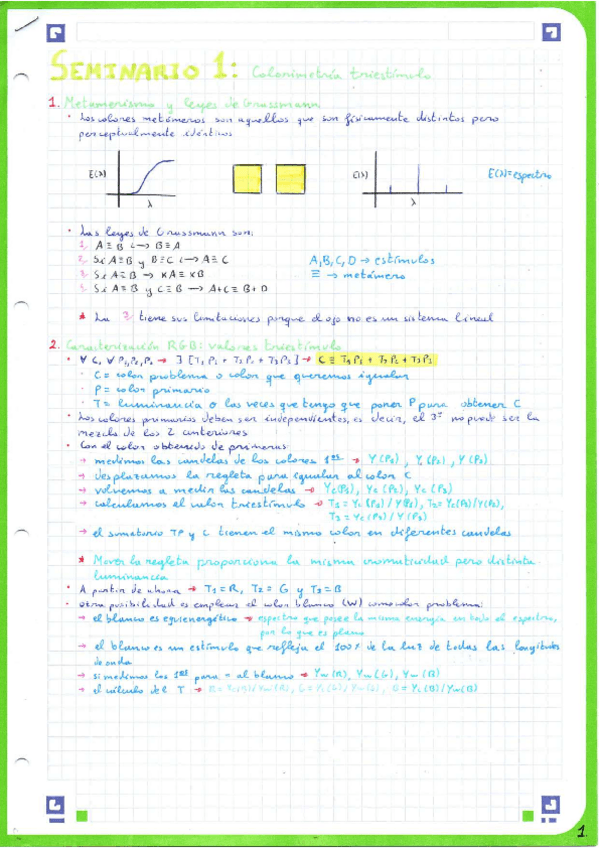 SEMINARIO 1: Colorimetría triestímulo
1. Metamerismo y leyes de Grassmann
• Los colores metámeros son aquellos que son físicamente distintos pero
perceptualmente idénticos
E(λ)
λ
E(λ)
λ
E(λ)=espectro
• Las leyes de Grassmann son:
A≡B ↔ B≡A
Si A≡B y B≡C ↔ A≡C
Si A≡B → KA≡KB
Si A≡B y C≡D → A+C≡B+D
A,B,C,D → estímulos
≡ → metámero
* La 3 tiene sus limitaciones porque el ojo no es un sistema lineal
2. Caracterización RGB: valores triestímulo
• ∀ C, ∀ P₁,P₂,P₃ → ∃ [T₁P₁ + T₂P₂ + T₃P₃] → C ≡ T₁P₁ + T₂P₂ + T₃P₃
· C = color problema o color que queremos igualar
· P = color primario
· T = luminancia o las veces que tengo que poner P para obtener C
• Los colores primarios deben ser independientes, es decir, el 3º no puede ser la
mezcla de los 2 anteriores
• Con el color obtenido de primarios:
→ medimos las candelas de los colores 1ᵒˢ → Y(P₁), Y(P₂), Y(P₃)
→ desplazamos la regleta para igualar al color C
→ volvemos a medir las candelas → Yc(P₁), Yc(P₂), Yc(P₃)
→ calculamos el valor triestímulo → T₁ = Yc(P₁)/Y(P₁), T₂ = Yc(P₂)/Y(P₂),
T₃ = Yc(P₃)/Y(P₃)
→ el sumatorio TP y C tienen el mismo color en diferentes candelas
* Mover la regleta proporciona la misma cromaticidad pero distinta
luminancia
• A partir de ahora → T₁=R, T₂=G y T₃=B
• Otra posibilidad es emplear el color blanco (W) como color problema:
→ el blanco es equienergético → espectro que posee la misma energía en todo el espectro,
por lo que es plano
→ el blanco es un estímulo que refleja el 100% de la luz de todas las longitudes
de onda
→ si medimos los 1ᵒˢ para = al blanco → Yw(R), Yw(G), Yw(B)
→ el cálculo del T → R = Yc(R)/Yw(R), G = Yc(G)/Yw(G), B = Yc(B)/Yw(B)
1